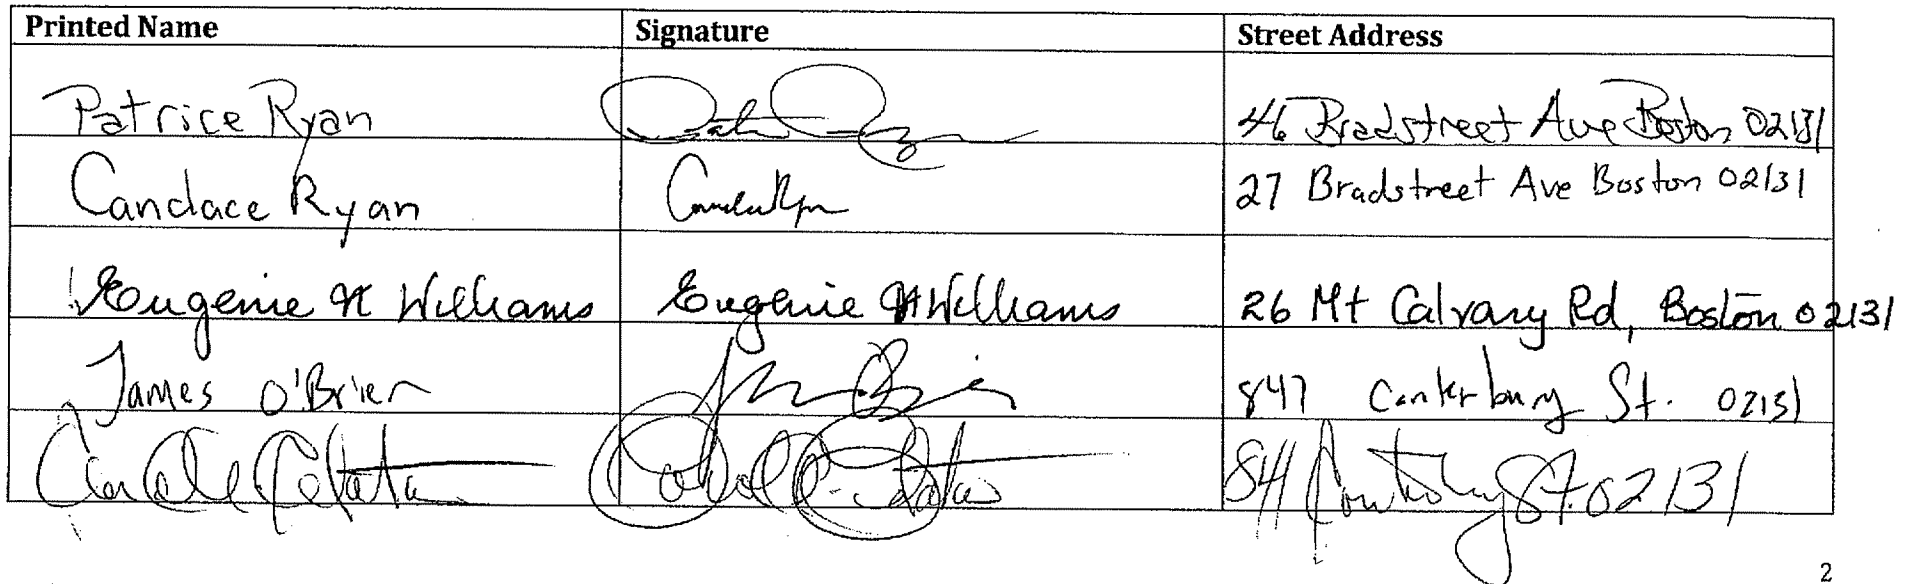 Printed Name Signature Street Address
Patrice Ryan 46 Bradstreet Ave Boston 02131
Candace Ryan Candace Ryan 27 Bradstreet Ave Boston 02131
Eugenie N Williams Eugenie N Williams 26 Mt Calvary Rd, Boston 02131
James O'Brien 847 Canterbury St. 02131
Canterbury St. 02131
2